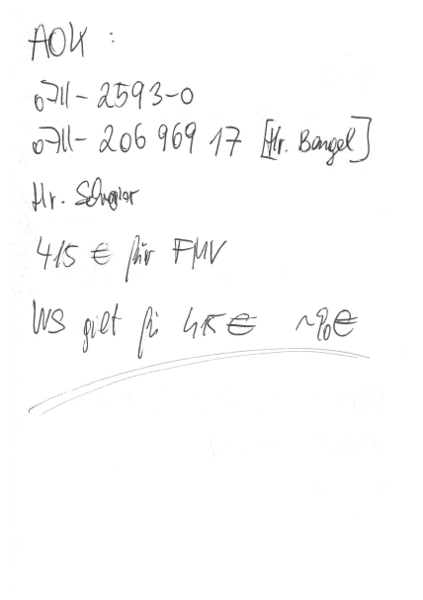 AOK :
0711-2593-0
0711-206 969 17 [Hr. Bangel]
Hr.
415 € für FMV
WS gilt für € ~90€